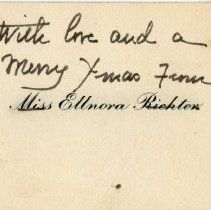 With love and a
Merry Xmas From
Miss Ellnora Richter